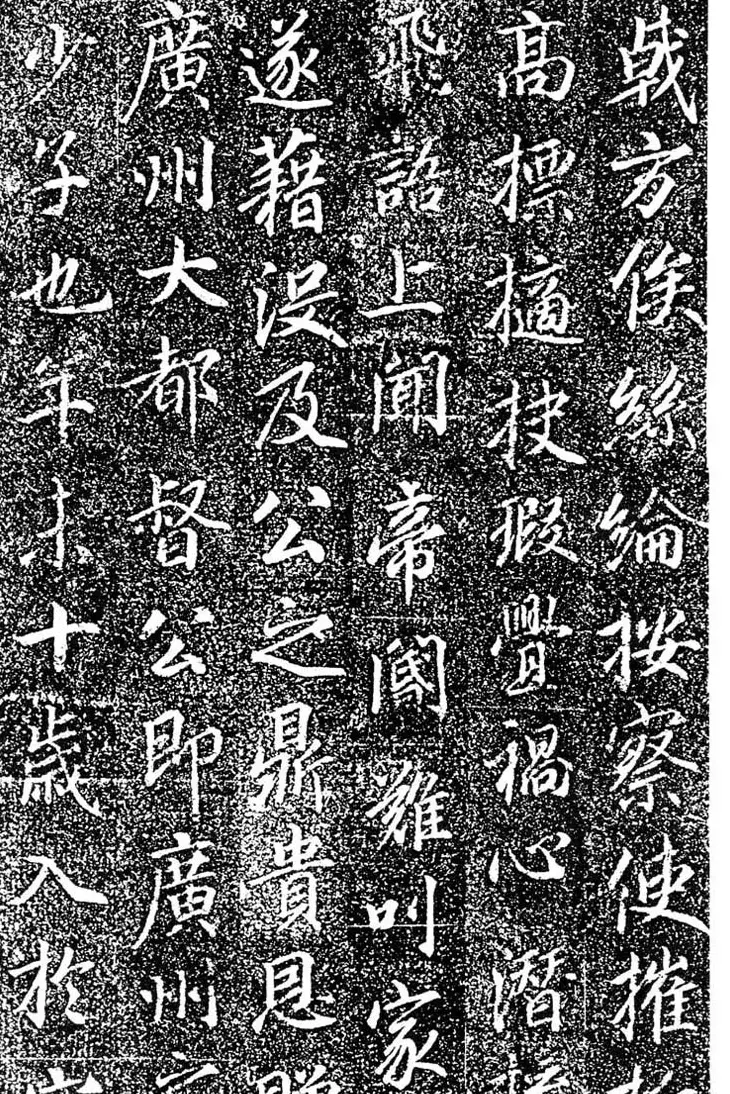 戟方俟絲綸按察使摧
高標擿抉瑕舋禍心潛
飛語上聞帝閽難叫家
遂藉没及公之鼎貴恩
廣州大都督公即廣州
少子也年未十歲入於